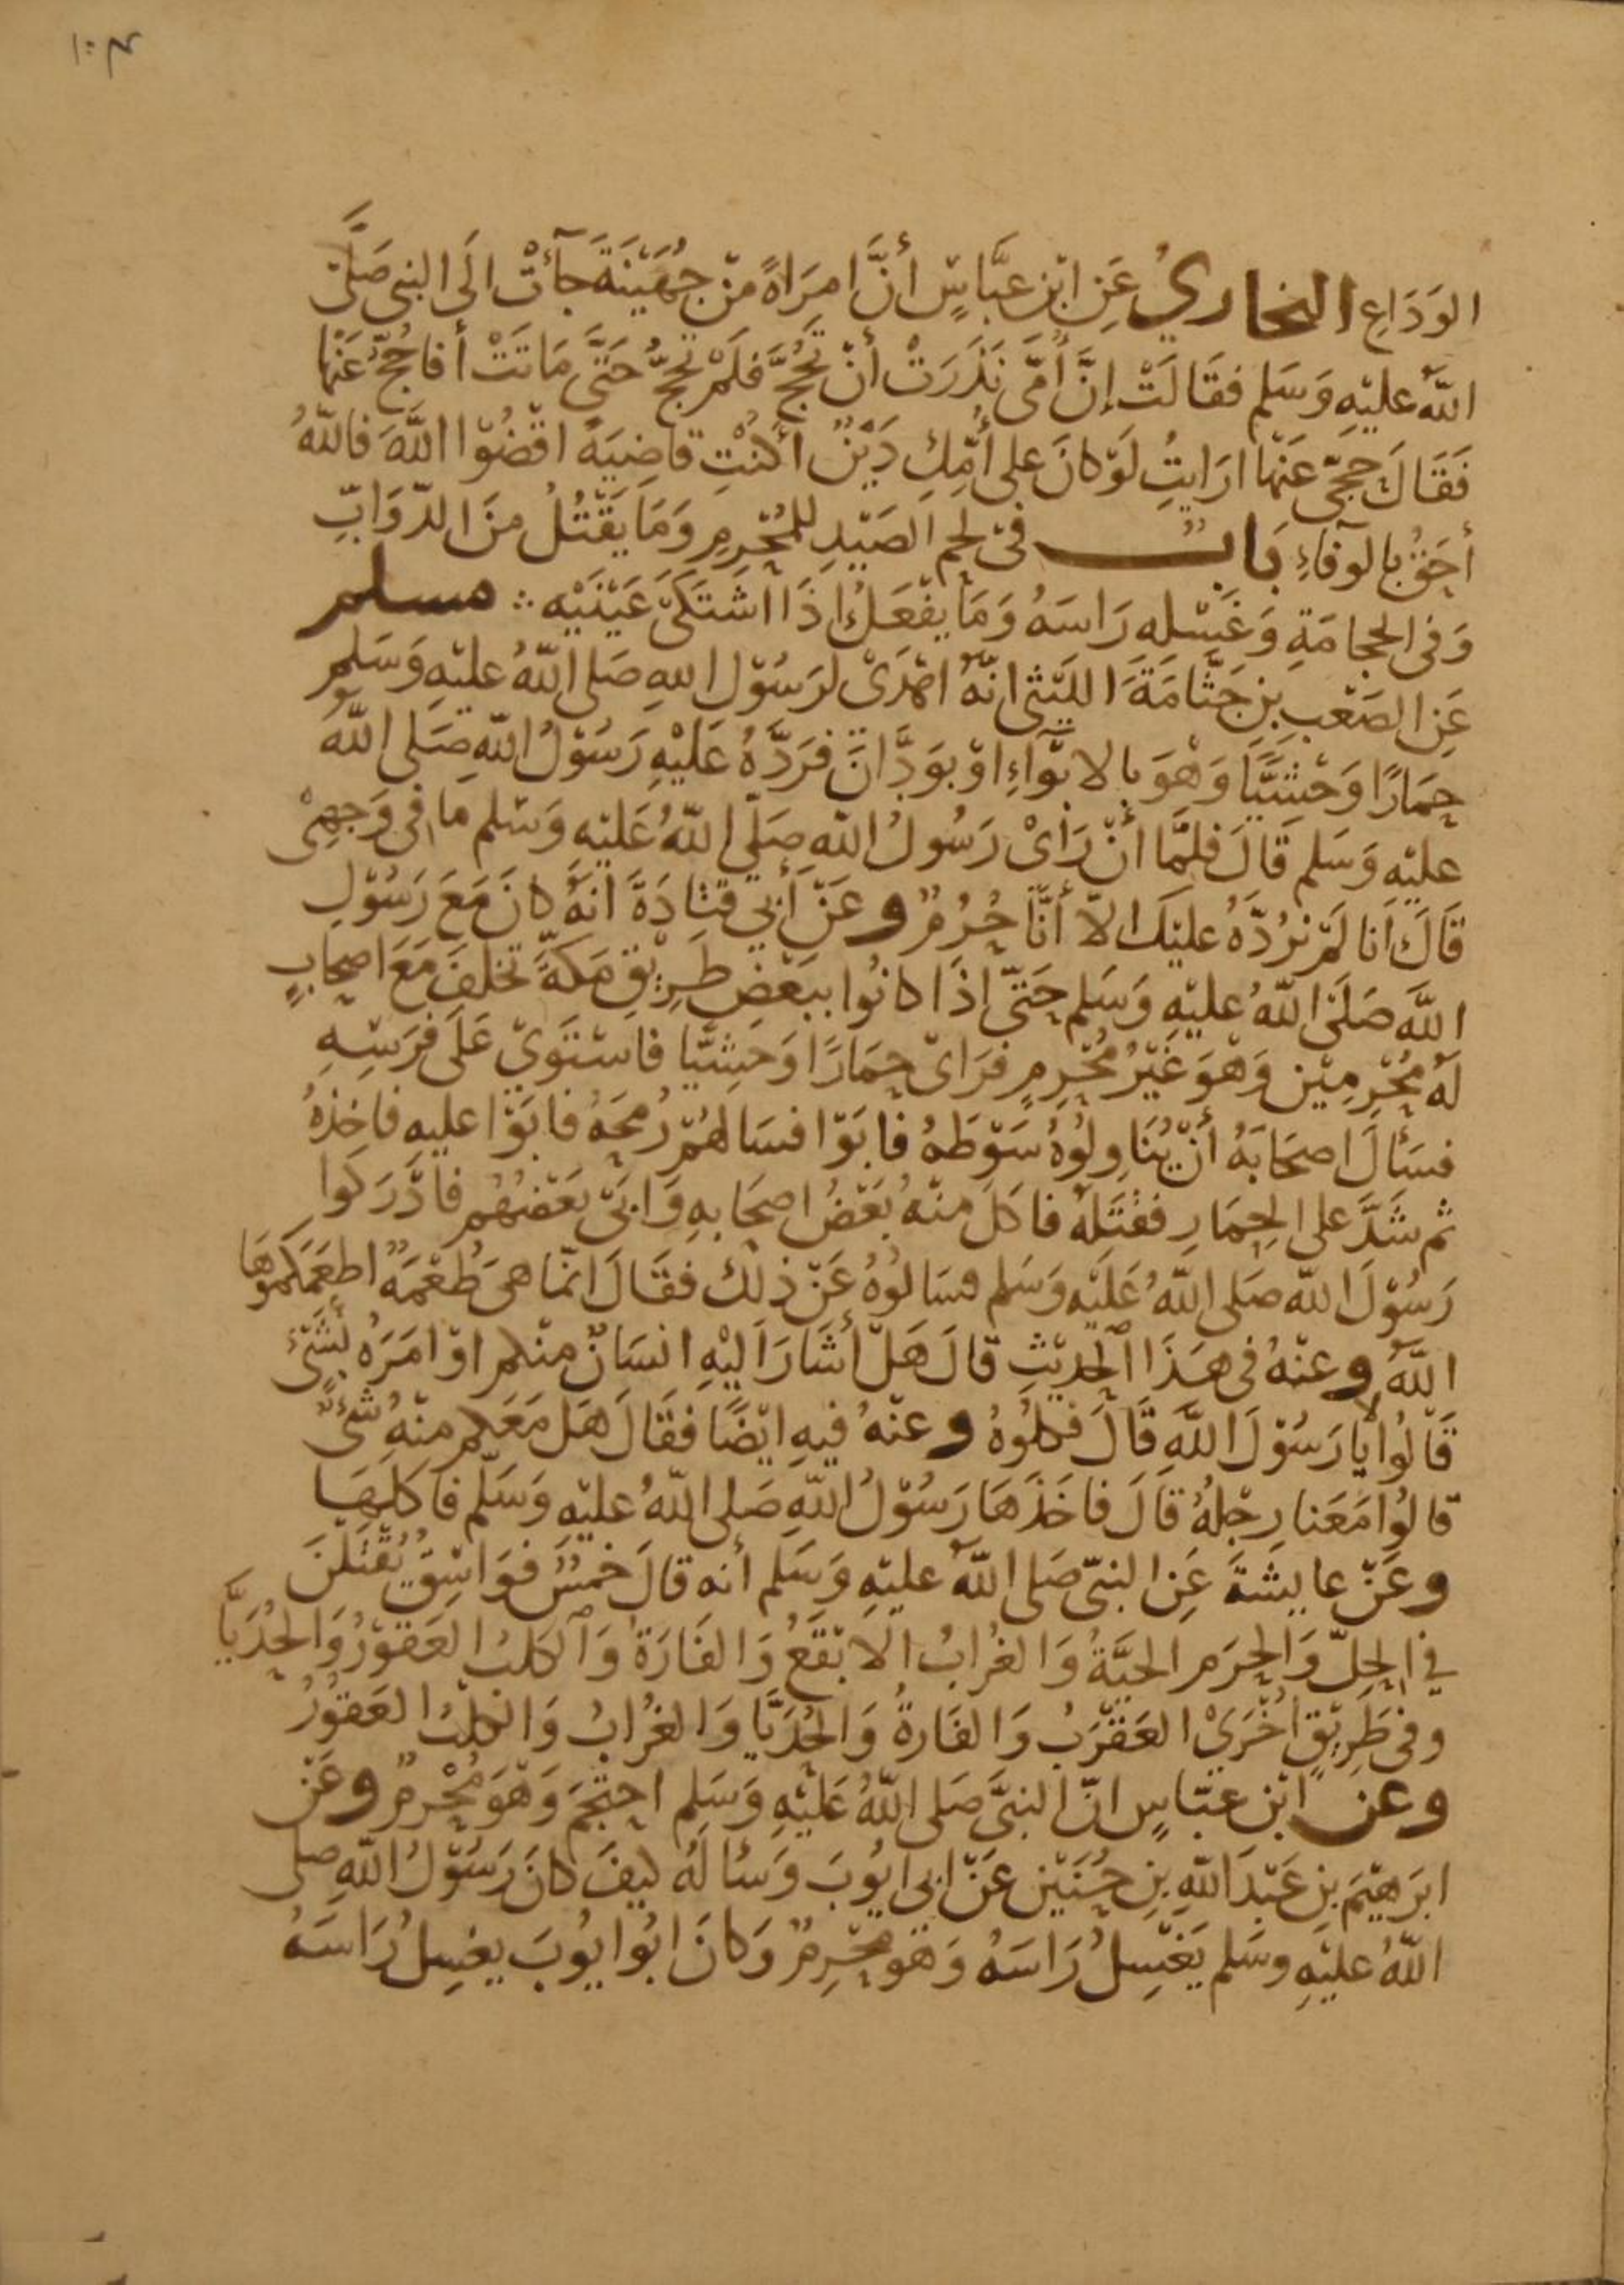 الوَدَاعِ البخاريُ عَنِ ابْنِ عبَّاسٍ أنَّ امرَاةً منْ جُهَيْنَةَ جآئتْ الَى النبى صَلَّى
اللّهُ عليْهِ وَسَلم فقَالَتْ إنَّ أمّى نَذَرَتْ أنْ تَحُجَّ فلَمْ تَحجَّ حَتَّى مَاتَتْ أفاحُجُّ عَنْها
فَقَالَ حجّى عنْها ارَايتِ لَوْ كانَ على أُمِّكِ دَيْنٌ أكنْتِ قاضِيَةً اقْضُوْا اللّهَ فاللّهُ
أحَقُّ بالوَفاءِ بَابٌ فى لحم الصَيْدِ للمُحْرِمِ وَمَا يَقْتُلُ منَ الدّوَابِّ
وَفى الحجامَةِ وَغَسْلِهِ رَاسَهُ وَمَا يفْعَلُ اذَا اشتَكَى عَيْنَيْهِ ∴ مسلم
عَنِ الصَعْبِ بنِ جَثَّامَةَ الليْثى انّهُ اهْدَىْ لرَسُوْلِ اللهِ صَلى اللّهُ عليْهِ وَسَلم
حِمَارًا وَحْشيًّا وَهْوَ بالابْوَآءِ اوْ بوَدَّانَ فرَدَّهُ عَلَيْهِ رَسُوْلُ اللّهِ صَلى اللّهُ
عليْهِ وَسَلم قَالَ فلمَّا أنْ رَأىْ رَسُولُ اللّهِ صَلّى اللّهُ عَليْهِ وَسَلم مَا فى وَجهِىْ
قَالَ انا لَمْ نرُدَّهُ عليْكَ الاّ أنَّا حُرُمٌ وعَنْ أبي قتادَةَ انّهُ كانَ مَعَ رَسُوْلِ
اللّهِ صَلَى اللّهُ عليْهِ وَسَلم حَتّى إذَا كانُوا ببَعْضِ طَرِيْقِ مَكّةَ تخلفَ مَعَ اصحَابٍ
لَهُ مُحْرِمِيْن وَهْوَ غَيْرُ مُحْرِمٍ فرَاىْ حِمَارًا وَحشِيّا فاسْتَوَىْ عَلَى فرَسِهِ
فسَأَلَ اصحَابَهُ أنْ يُنَاوِلُوْهُ سَوْطَهُ فابَوْا فسَالهُمْ رُمحَهُ فابَوْا عليهِ فاخذهُ
ثم شَدَّ على الحِمَارِ فقْتَلهُ فاكَلَ منْهُ بَعْضُ اصحَابهِ وَابَى بَعْضهُم فادْرَكوا
رَسُوْلَ اللّه صَلى اللّهُ عَليْهِ وَسَلم فسَالوُهُ عَنْ ذلك فقَالَ انمّا هىَ طُعْمَةٌ اطعَمَكمُوهَا
اللّهُ وعنْهُ فى هذَا الحديْثِ قالَ هَلْ أشَارَ اليْهِ انسَانٌ منْكم اوْ امَرَهُ بشَىْءٍ
قَالُوا لا يا رَسُوْلَ اللّهِ قَالَ فكلُوْهُ وعنْهُ فيهِ ايْضًا فقَالَ هَل مَعَكم منْهُ شىْءٌ
قالُوا مَعَنا رِجْلهُ قالَ فاخَذَهَا رَسُوْلُ اللّهِ صَلى اللّهُ عليْهِ وَسَلّم فاكلهَا
وعَنْ عايِشةَ عَنِ النبىّ صَلى اللّهُ عليْهِ وَسَلم أنه قالَ خمسٌ فوَاسِقُ يُقْتَلنَ
في الحِلّ وَالحرَم الحيَّةُ وَالغُرابُ الابْقَعُ وَالفَارَةُ وَالكلبُ العَقوْرُ وَالحُدَيَّا
وفى طَرِيْقٍ اُخْرَىْ العَقْرَبُ وَالفَارةُ وَالحُدَيَّا وَالغُرابُ وَالكلبُ العَقوُرُ
وعن ابْن عبّاسٍ انّ النبىَّ صَلى اللّهُ عَليْهِ وَسَلم احتجَمَ وَهْوَ مُحْرِمٌ وعَنْ
ابرَهيْمَ بنِ عَبْدَاللّهِ بنِ حُنَيْنٍ عَنْ ابى ايُوبَ وَسألهُ كيفَ كانَ رَسُوْلُ اللّهِ صلى
اللّهُ عليْهِ وسَلم يَغْسِلُ رَاسَهُ وَهْوَ محْرِمٌ وَكانَ ابُوا يوُبَ يغسِلُ رَاسَهُ